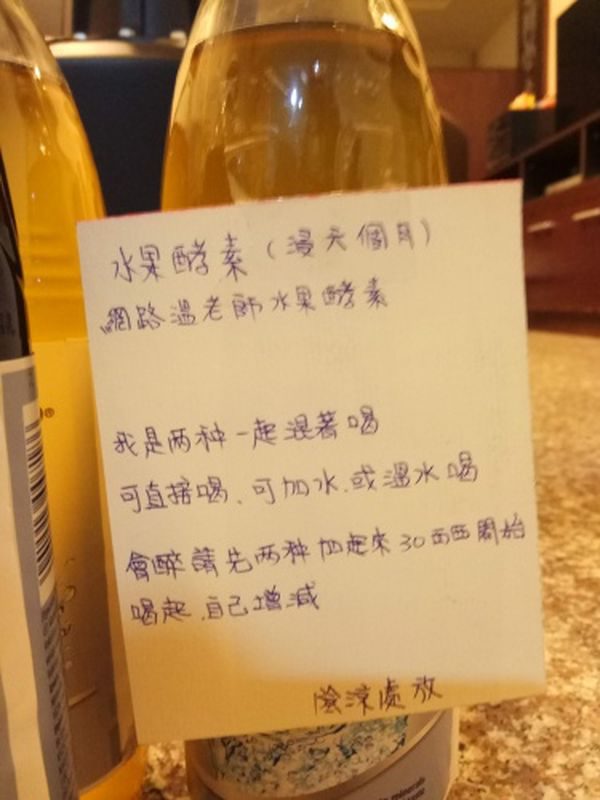 水果酵素（浸六個月）
網路溫老師水果酵素
我是两种一起混著喝
可直接喝、可加水、或溫水喝
會醉請先两种加起來30西西開始
喝起、自己增減
陰涼處放